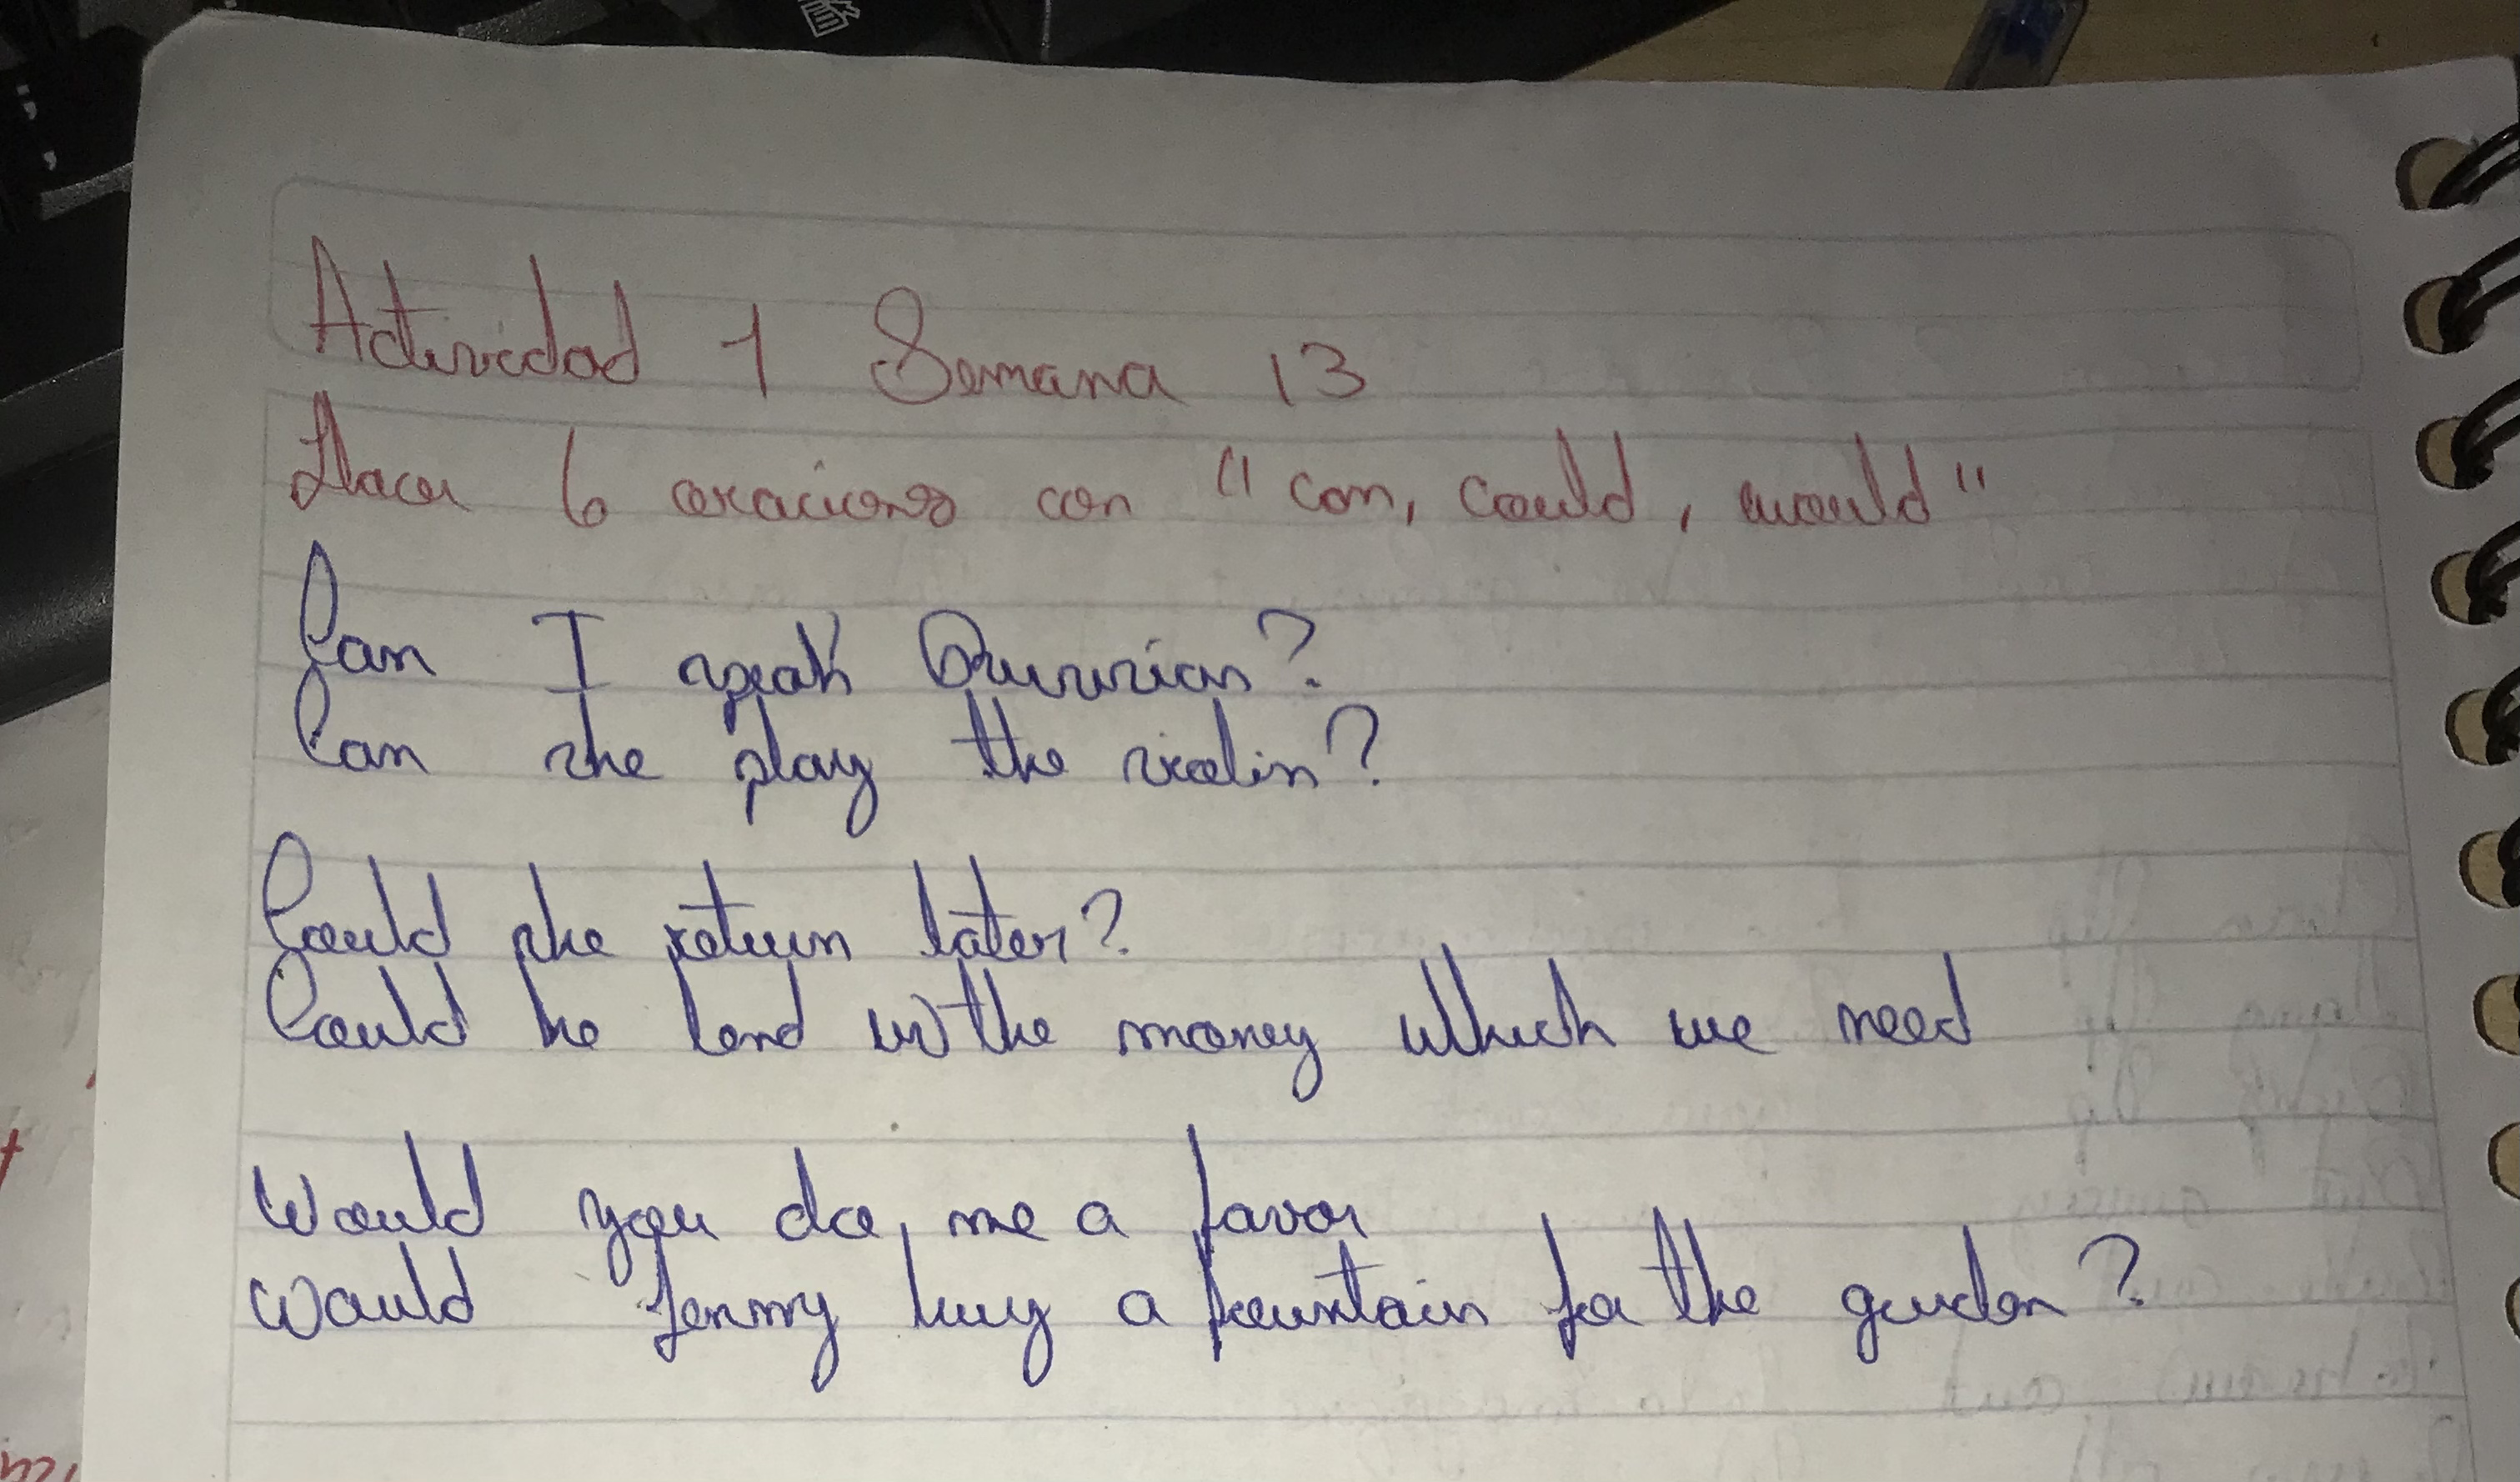 Actividad 1 Semana 13
Hacer 6 oraciones con "can, could, would"
Can I speak Russian?
Can she play the violin?
Could she return later?
Could he lend us the money which we need
Would you do, me a favor
Would Jenny buy a fountain for the garden?